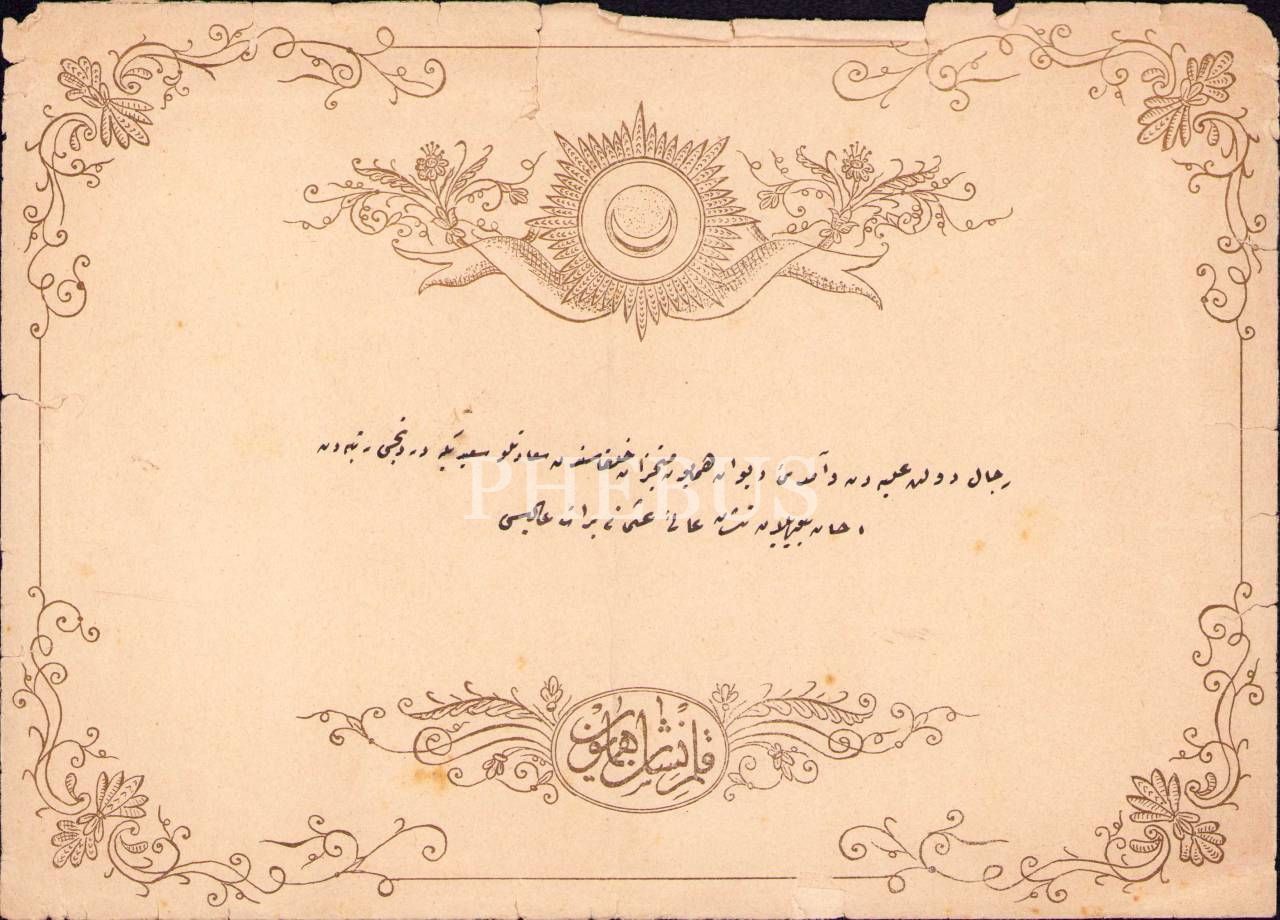 رجال دولت عليه دن و آمدئ ديوان همايون متحيزان خلفاسندن سعادتلو سعيد بكه دردنجى رتبه دن
احسان بيوريلان نشان عالئ عثمانى برات عاليسى
PHEBUS
قلم نشان همايون